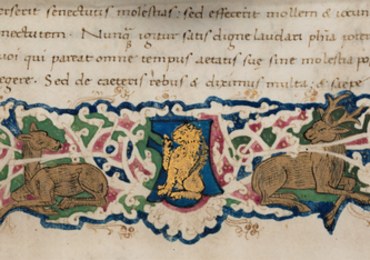 terserit senectutis molestias: sed effecerit mollem & iocun
nectutem. Nunq̃ igitur satis digne laudari phia poter
cui qui pareat omne tempus aetatis sue sine molestia po
egere. Sed de caeteris rebus & diximus multa & saepe